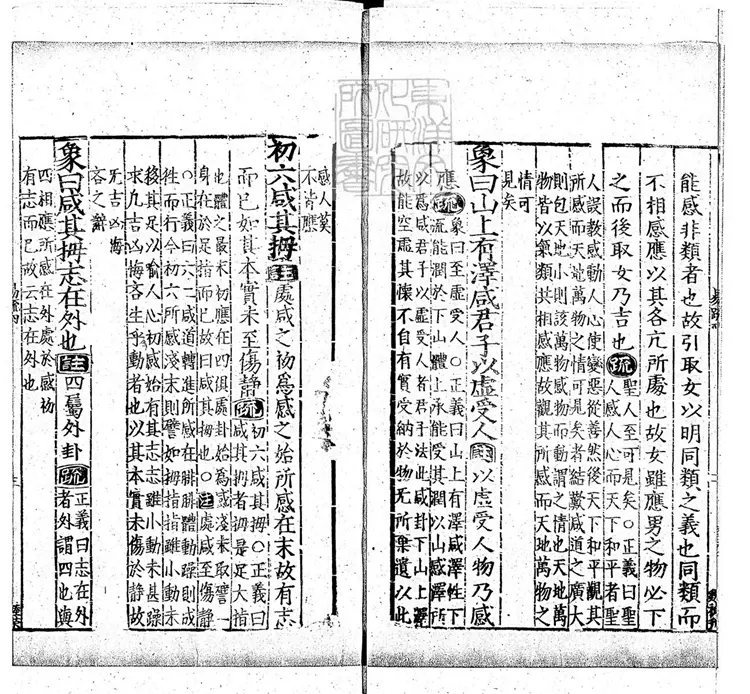 能感非類者也故引取女以明同類之義也同類而
不相感應以其各亢所處也故女雖應男之物必下
之而後取女乃吉也疏聖人至可見矣○正義曰聖
人感人心而天下和平者聖
人設教感動人心使變惡從善然後天下和平觀其
所感而天地萬物之情可見矣者結歎咸道之廣大
則包天地小則該萬物感物而動謂之情也天地萬
物皆以氣類共相感應故觀其所感而天地萬物之
情可
見矣
象曰山上有澤咸君子以虛受人註以虛受人物乃感
應疏象曰至虛受人○正義曰山上有澤咸澤性下
流能潤於下山體上承能受其潤以山感澤所
以為咸君子以虛受人者君子法此咸卦下山上澤
故能空虛其懷不自有實受納於物无所棄遺以此
感人莫
不皆應
初六咸其拇註處咸之初為感之始所感在末故有志
而已如其本實未至傷靜疏初六咸其拇○正義曰
咸其拇者拇是足大指
也體之最末初應在四俱處卦始為感淺末取譬一
身在於足指而已故曰咸其拇也○註處咸至傷靜
○正義曰六二咸道轉進所感在腓腓體動躁則成
往而行今初六所感淺末則譬如拇指指雖小動未
移其足以喻人心初感始有其志志雖小動未甚躁
求凡吉凶悔吝生乎動者也以其本實未傷於靜故
无吉凶悔
吝之辭
象曰咸其拇志在外也註四屬外卦疏正義曰志在外
者外謂四也與
四相應所感在外處於感初
有志而已故云志在外也